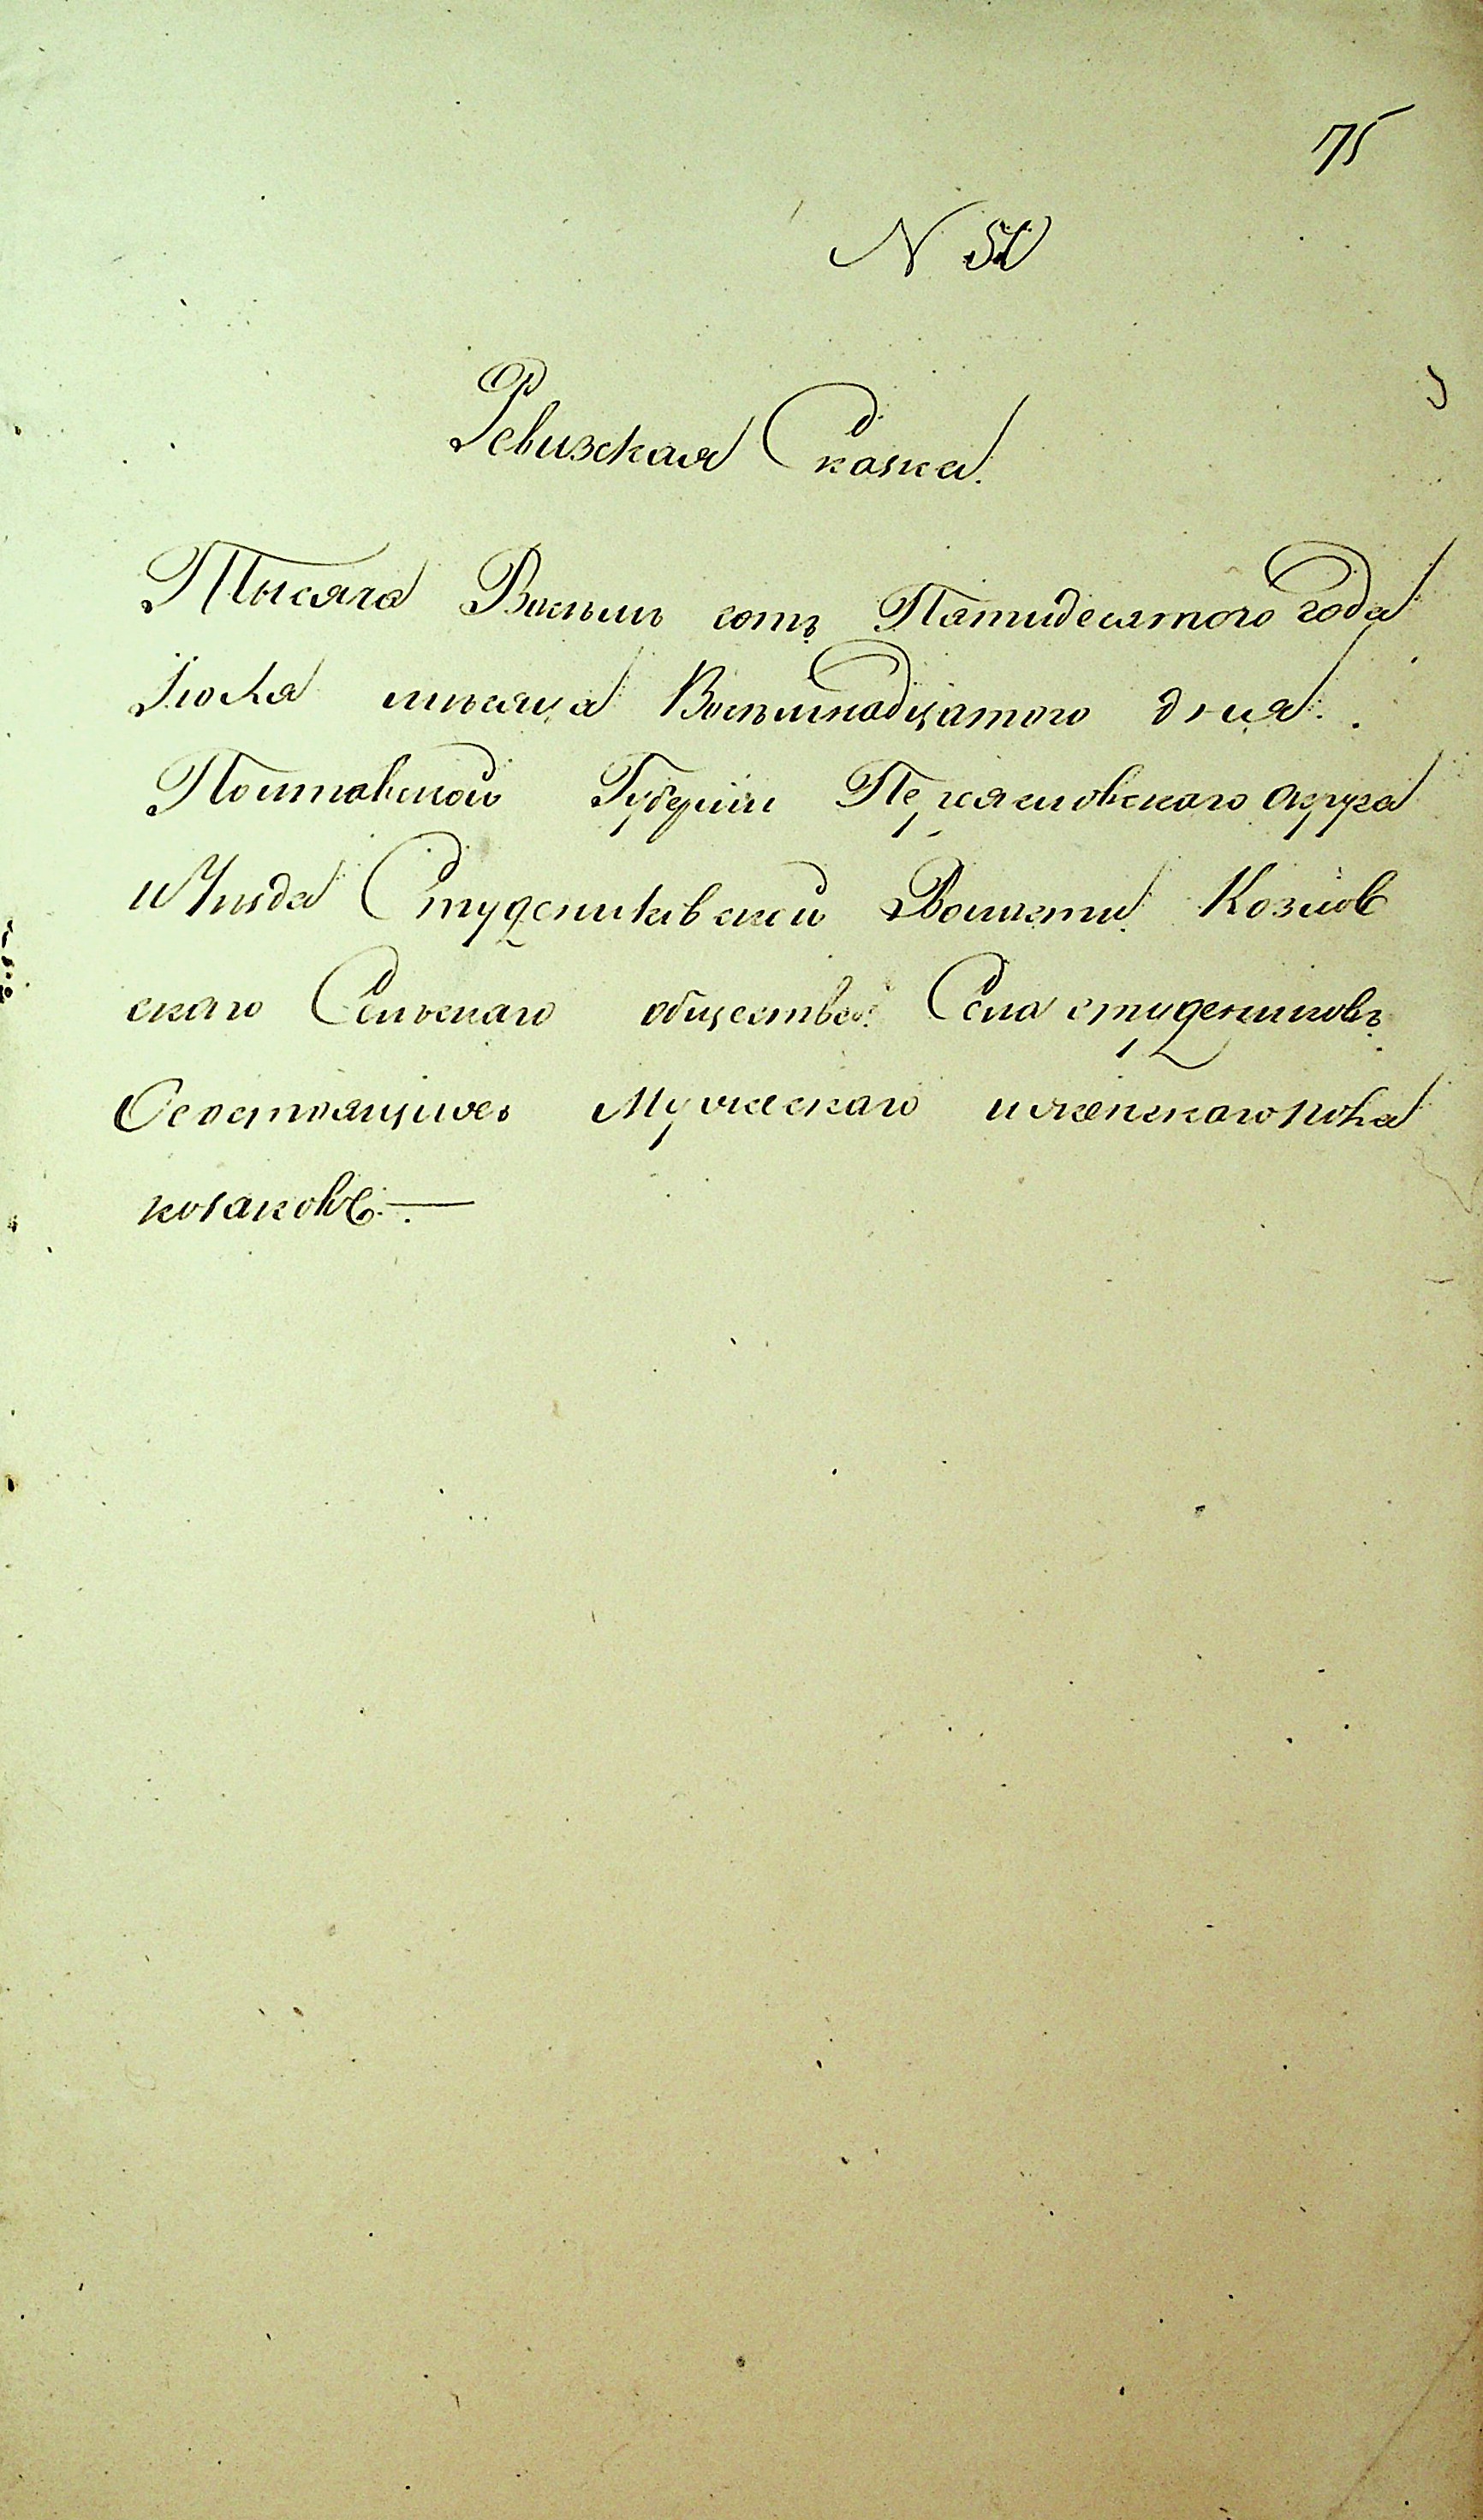 75
N 50
Ревизская Сказка.
Тысяча Восѣмь сотъ Пятидесятого года
Iюля мѣсяца Восѣмнадцатого дня.
Полтавской Губерніи Переясловского округа
и Уѣзда Студениковской Волости Козлов
скаго Селѣскаго общества Села студениковъ
О состоящихъ Мужескаго и женскаго пола
козаковъ —